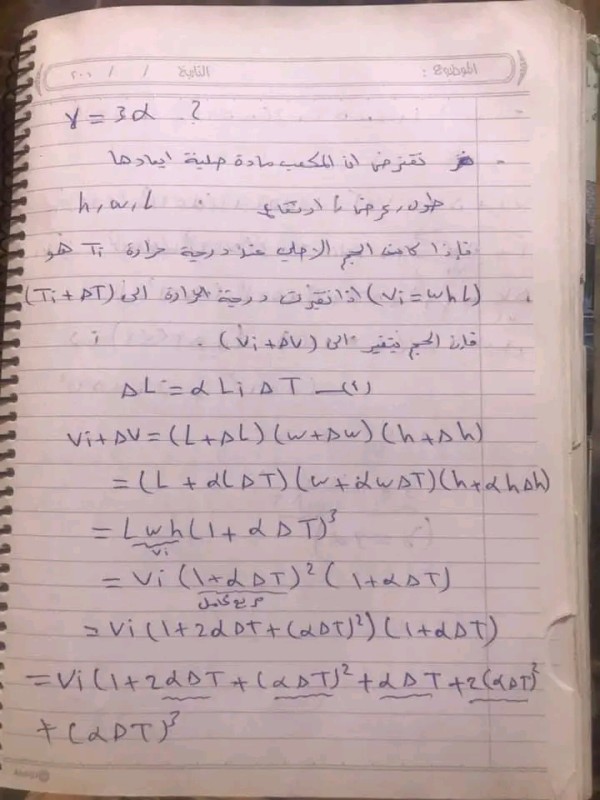 الموضوع : التاريخ / / ٢٠٠
γ = 3α ?
نفترض ان المكعب مادة صلبة ابعادها
طول، عرض، ارتفاع h, w, L
فإذا كانت الحجم الاصلي عند درجة حرارة Ti هو
(Vi = whL) اذا تغيرت درجة الحرارة الى (Ti + ΔT)
فإن الحجم يتغير الى (Vi + ΔV) .
ΔL = αLi ΔT —(1)
Vi + ΔV = (L + ΔL) (w + Δw) (h + Δh)
= (L + αLΔT) (w + αwΔT) (h + αhΔh)
= Lwh (1 + αΔT)³
Vi
= Vi (1 + αΔT)² (1 + αΔT)
مربع كامل
= Vi (1 + 2αΔT + (αΔT)²) (1 + αΔT)
= Vi (1 + 2αΔT + (αΔT)² + αΔT + 2(αΔT)²
+ (αΔT)³